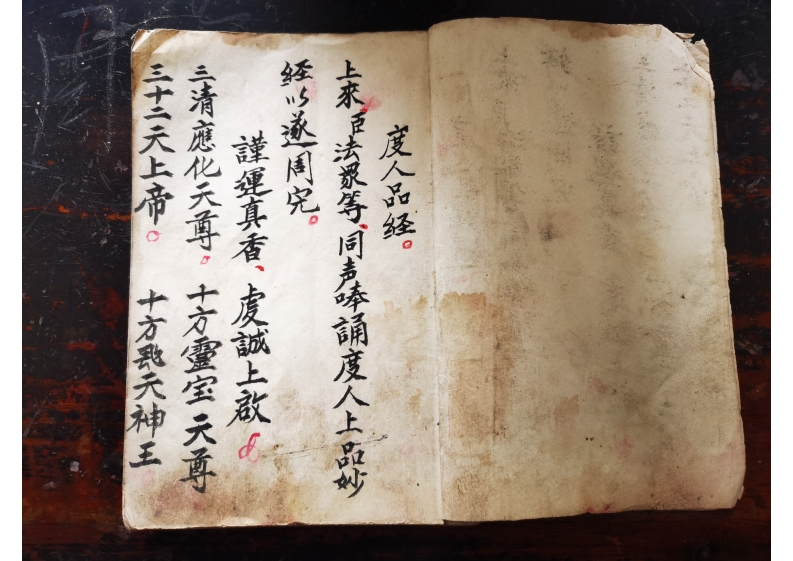 度人品経。
上來臣法眾等、同声唪誦度人上品妙
経以遂周完。
謹運真香、虔誠上啟
三清應化天尊。十方靈宝天尊
三十二天上帝。十方飛天神王